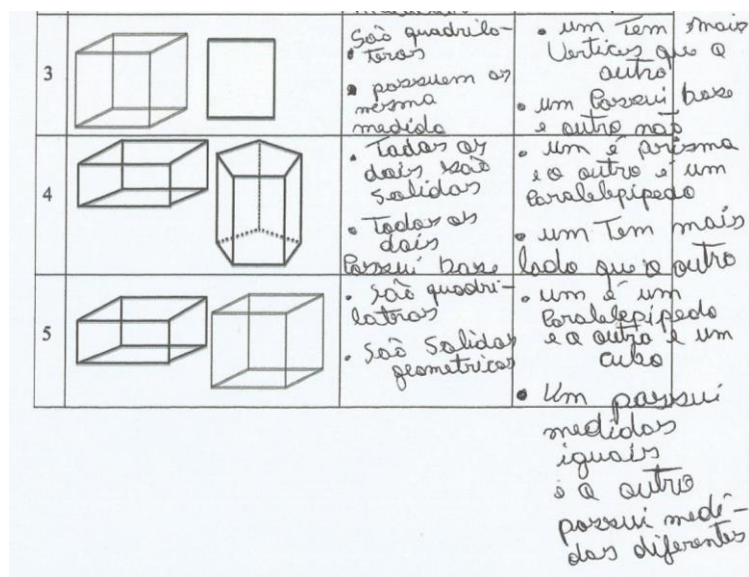 3
São quadrilá-
• teros
• possuem as
mesma
medida
• um tem mais
Vertices que o
outro
• um Possui base
e outro não
4
• Todas os
dois são
Solidas
• Todos os
dois
Possui base
• um é prisma
e o outro é um
Paralelepípedo
• um Tem mais
lado que o outro
5
• são quadri-
latras
• São Solidas
geometricas
• um é um
Paralelepípedo
e o outro é um
cubo
• Um possui
medidas
iguais
e o outro
possui medi-
das diferentes